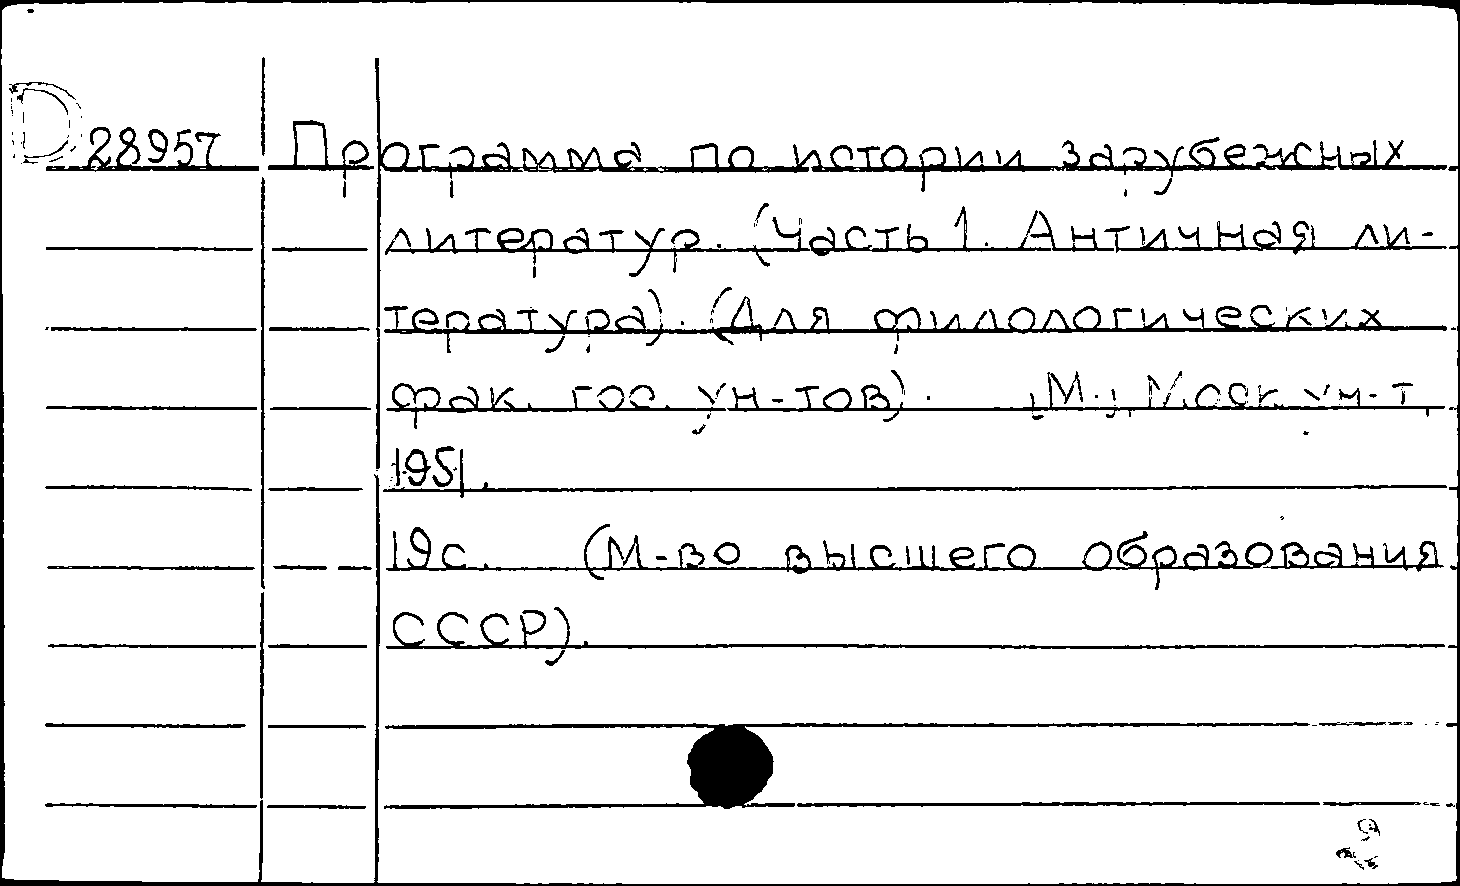 D 28957 Программа по истории зарубежных
литератур. (Часть 1. Античная ли-
тература). (Для филологических
фак. гос. ун-тов). [М.], Моск. ун-т,
1951.
19с. (М-во высшего образования
СССР).